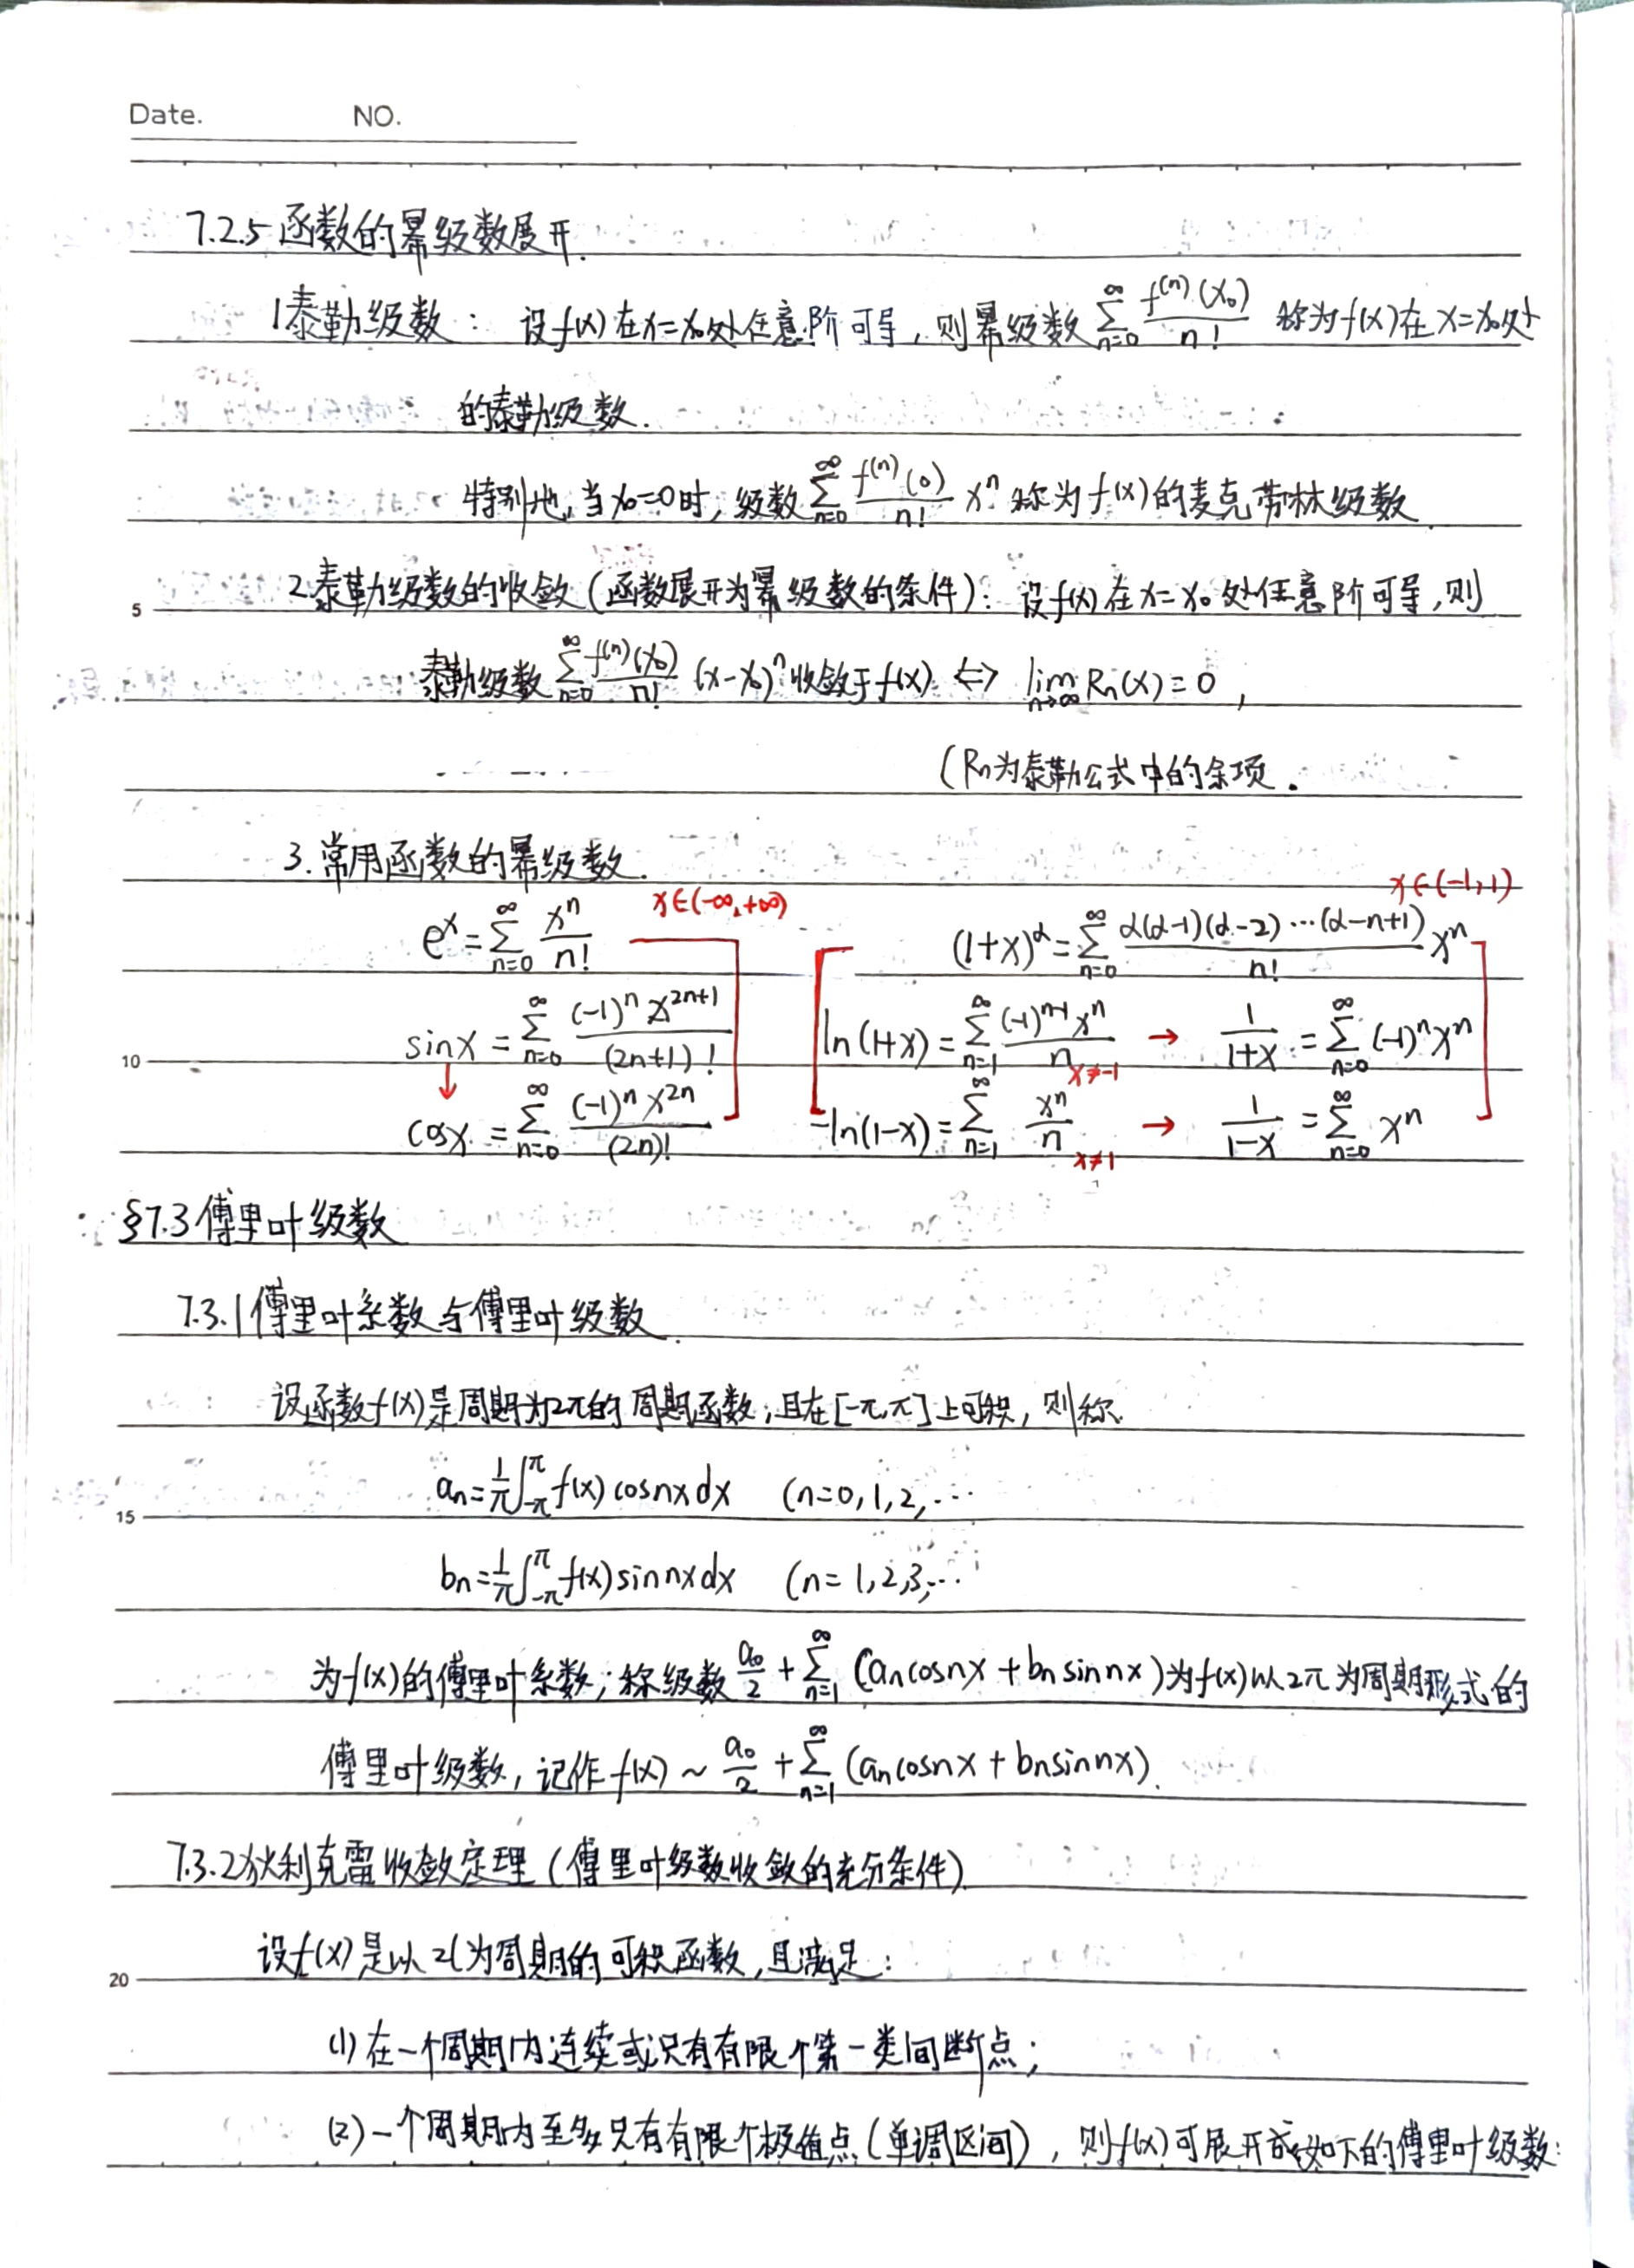 Date. NO.
7.2.5 函数的幂级数展开.
1 泰勒级数： 设f(x)在x=x₀处任意阶可导，则幂级数 ∑_{n=0}^{∞} f⁽ⁿ⁾(x₀)/n! 称为f(x)在x=x₀处
的泰勒级数.
特别地,当x₀=0时,级数 ∑_{n=0}^{∞} f⁽ⁿ⁾(0)/n! xⁿ 称为f(x)的麦克劳林级数.
2.泰勒级数的收敛(函数展开为幂级数的条件)：设f(x)在x=x₀处任意阶可导,则
5
泰勒级数 ∑_{n=0}^{∞} f⁽ⁿ⁾(x₀)/n! (x-x₀)ⁿ 收敛于f(x) ⟺ lim_{n→∞} Rn(x)=0,
(Rn为泰勒公式中的余项.
3.常用函数的幂级数.
x∈(-∞,+∞) x∈(-1,1)
eˣ = ∑_{n=0}^{∞} xⁿ/n! (1+x)^α = ∑_{n=0}^{∞} α(α-1)(α-2)⋯(α-n+1)/n! xⁿ
sinx = ∑_{n=0}^{∞} (-1)ⁿx²ⁿ⁺¹/(2n+1)! ln(1+x) = ∑_{n=1}^{∞} (-1)ⁿ⁻¹xⁿ/n x≠-1 → 1/(1+x) = ∑_{n=0}^{∞} (-1)ⁿxⁿ
10 ↓
cosx = ∑_{n=0}^{∞} (-1)ⁿx²ⁿ/(2n)! -ln(1-x) = ∑_{n=1}^{∞} xⁿ/n x≠1 → 1/(1-x) = ∑_{n=0}^{∞} xⁿ
§7.3 傅里叶级数
7.3.1 傅里叶系数与傅里叶级数.
设函数f(x)是周期为2π的周期函数,且在[-π,π]上可积,则称
aₙ = 1/π ∫_{-π}^{π} f(x)cosnxdx (n=0,1,2,⋯
15
bₙ = 1/π ∫_{-π}^{π} f(x)sinnxdx (n=1,2,3,⋯
为f(x)的傅里叶系数;称级数 a₀/2 + ∑_{n=1}^{∞} (aₙcosnx+bₙsinnx)为f(x)以2π为周期形式的
傅里叶级数,记作f(x) ~ a₀/2 + ∑_{n=1}^{∞} (aₙcosnx+bₙsinnx).
7.3.2 狄利克雷收敛定理(傅里叶级数收敛的充分条件).
设f(x)是以2l为周期的可积函数,且满足:
20
(1)在一个周期内连续或只有有限个第一类间断点;
(2)一个周期内至多只有有限个极值点(单调区间),则f(x)可展开成如下的傅里叶级数: